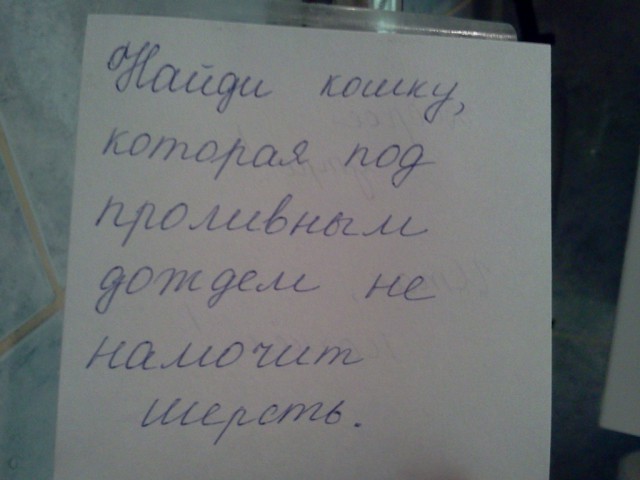 Найди кошку,
которая под
проливным
дождем не
намочит
шерсть.